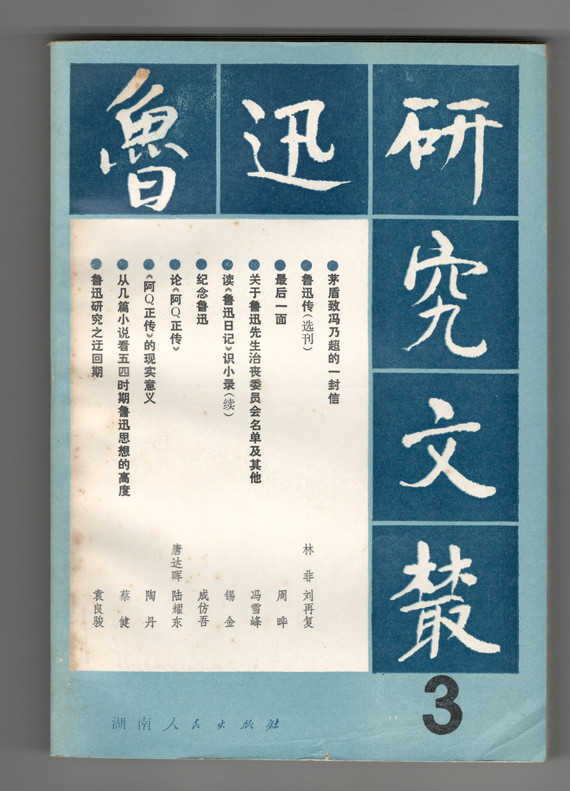 魯迅研究文叢
茅盾致冯乃超的一封信
鲁迅传(选刊) 林非 刘再复
最后一面 周晔
关于鲁迅先生治丧委员会名单及其他 冯雪峰
读《鲁迅日记》识小录(续) 锡金
纪念鲁迅 成仿吾
论《阿Q正传》 唐达晖 陆耀东
《阿Q正传》的现实意义 陶丹
从几篇小说看五四时期鲁迅思想的高度 蔡健
鲁迅研究之迂回期 袁良骏
3
湖南人民出版社